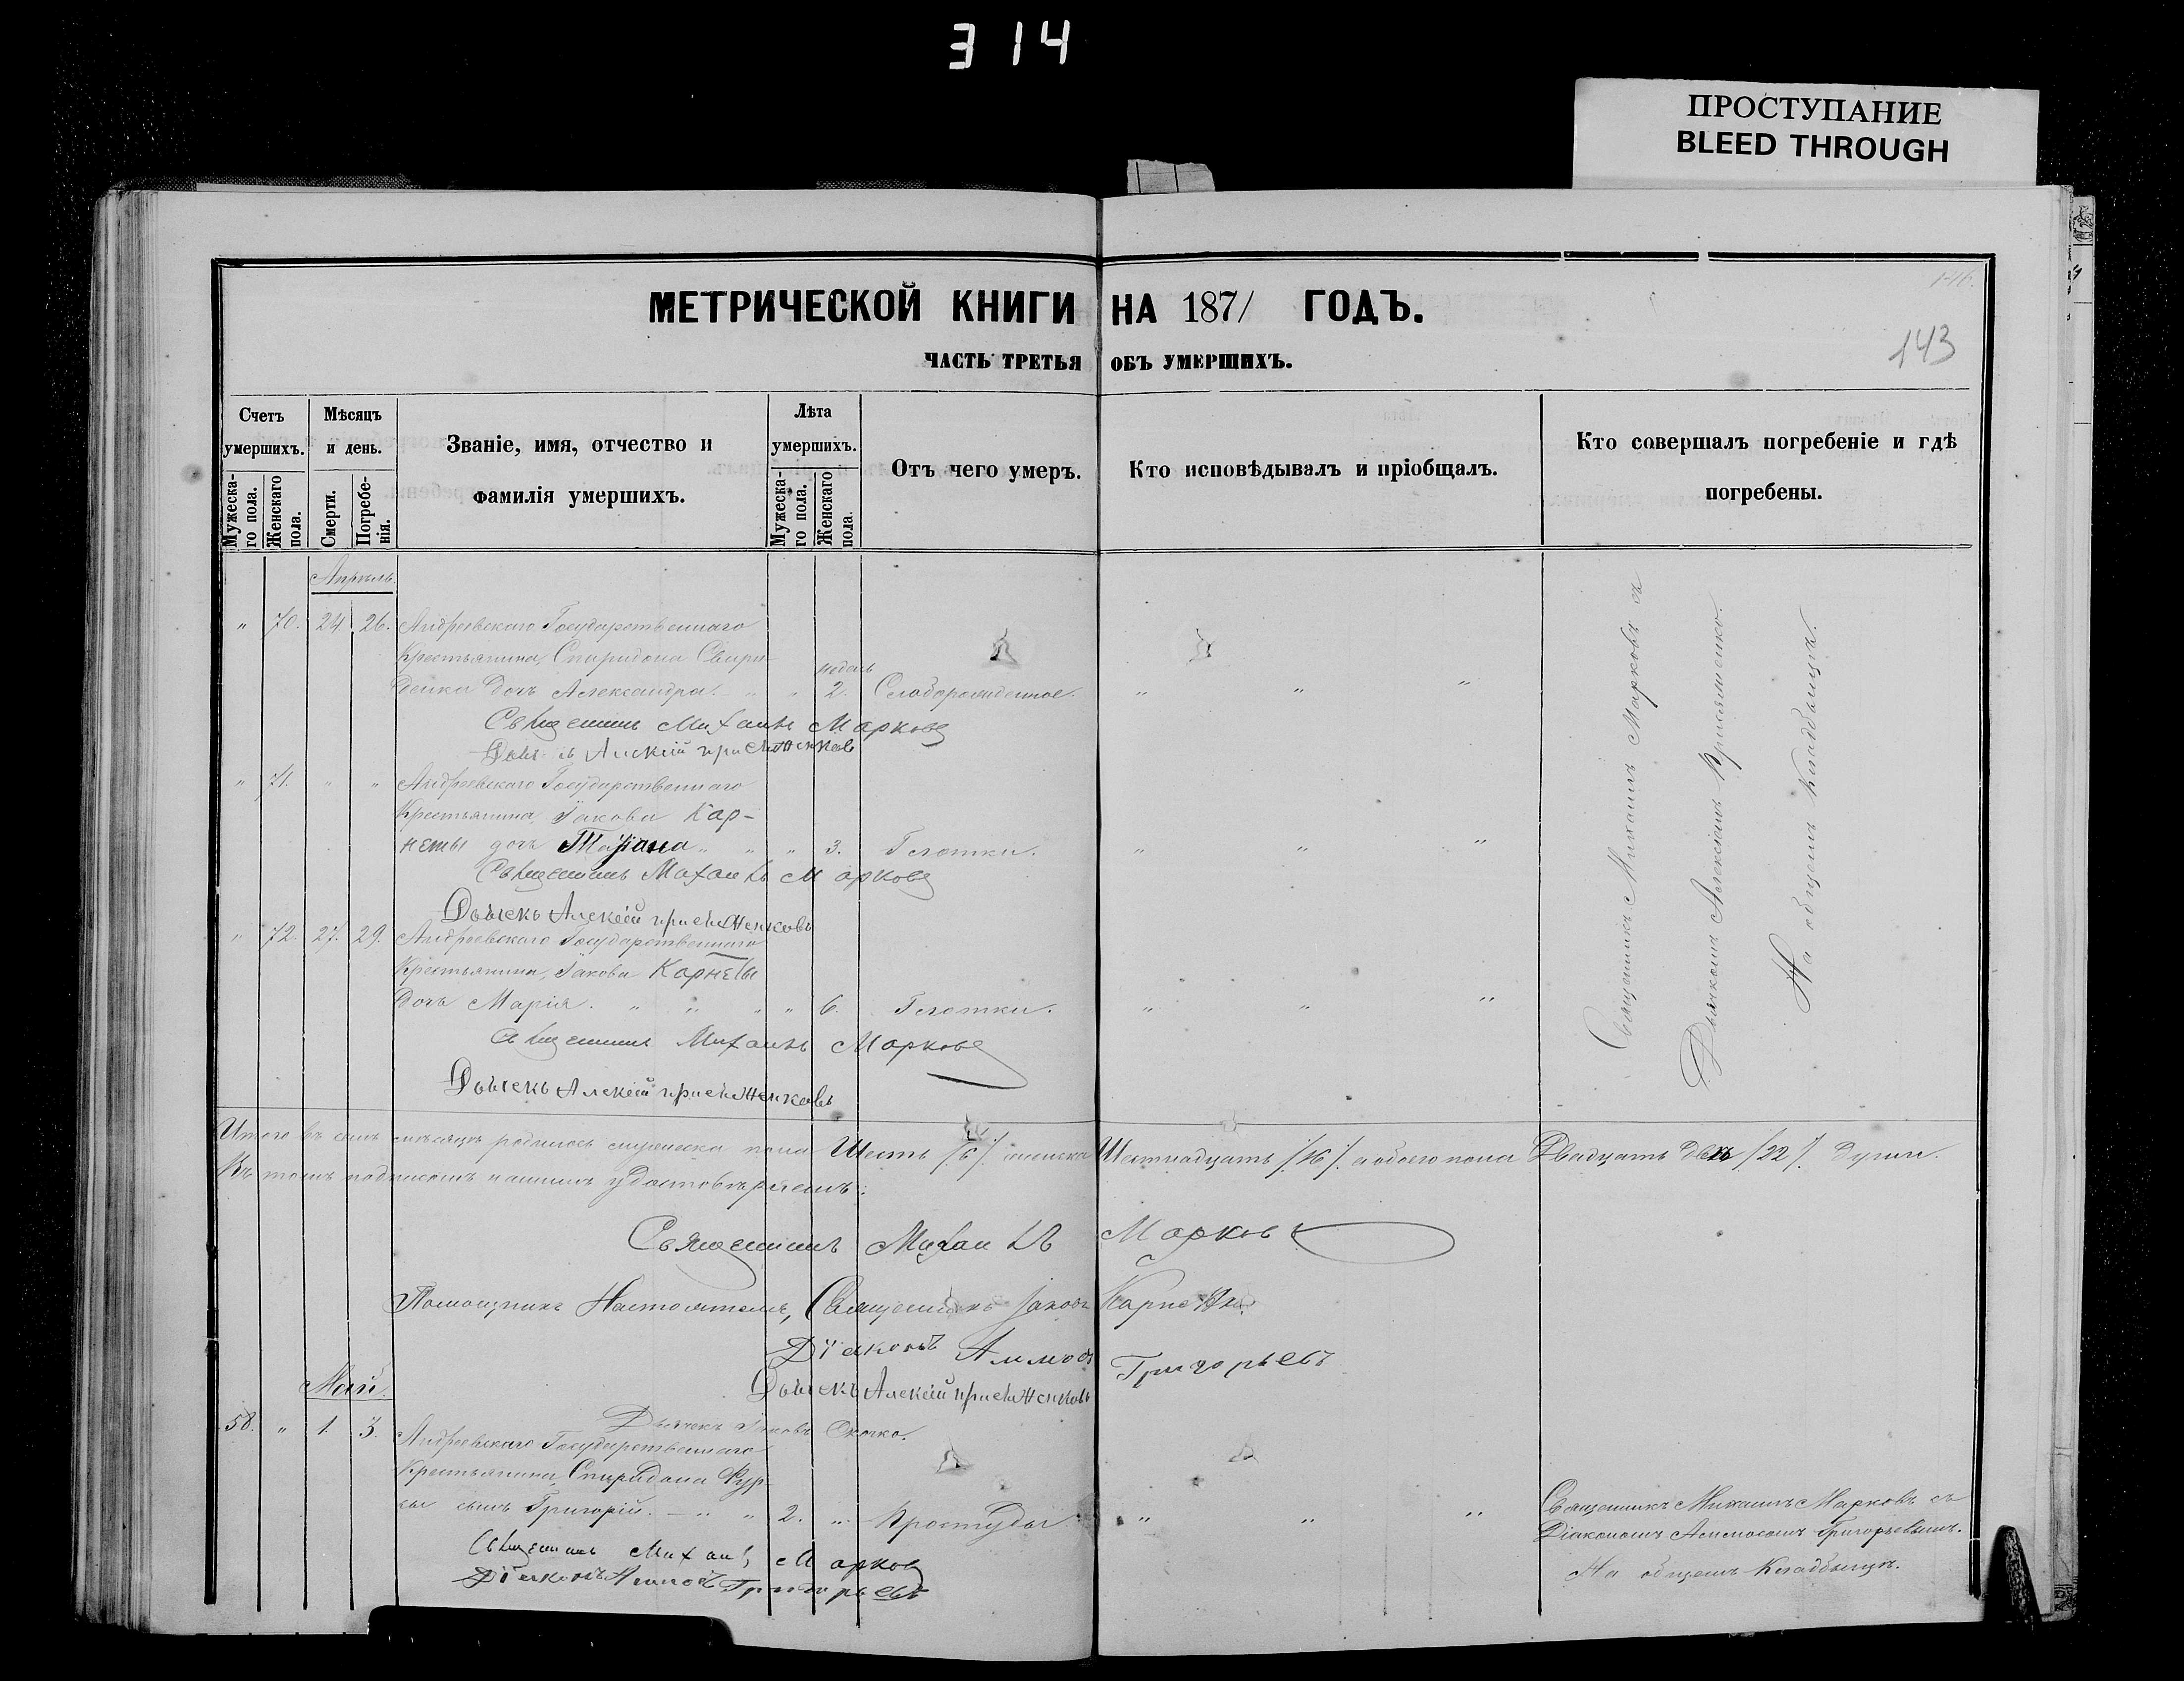 314
ПРОСТУПАНИЕ
BLEED THROUGH
МЕТРИЧЕСКОЙ КНИГИ НА 1871 ГОДЪ.
143
ЧАСТЬ ТРЕТЬЯ ОБЪ УМЕРШИХЪ.
Счетъ умершихъ.
Мужеска-го пола.
Женскаго пола.
Мѣсяцъ и день.
Смерти.
Погребе-нія.
Званіе, имя, отчество и
фамилія умершихъ.
Лѣта умершихъ.
Мужеска-го пола.
Женскаго пола.
Отъ чего умеръ.
Кто исповѣдывалъ и пріобщалъ.
Кто совершалъ погребеніе и гдѣ
погребены.
Апрѣль.
" 70. 24. 26. Андреевскаго Государственнаго
Крестьянина, Спиридона Свири-
денка дочь Александра. " " недѣль 2. Слаборожденное. " " "
Священникъ Михаилъ Марковъ
Алексій
" 71. " " Андреевскаго Государственнаго
Крестьянина, Іакова Кар-
неты дочь Татіана " " " 3. Глотки. " " "
Священникъ Михаилъ Марковъ
Дьячекъ Алексій
" 72. 27. 29. Андреевскаго Государственнаго
Крестьянина, Іакова Карнеты
дочь Марія. " " " " 6. Глотки. " " "
Священникъ Михаилъ Марковъ
Дьячекъ Алексій
Священникъ Михаилъ Марковъ съ
Дьячкомъ Алексіемъ
На общемъ кладбищѣ.
Итого въ семъ мѣсяцѣ родилось мужеска пола Шесть /6/. женска Шестнадцать /16/. а обоего пола Двадцать двѣ /22/. души.
Въ томъ подписомъ нашимъ удостовѣряемъ:
Священникъ Михаилъ Марковъ
Помощникъ Настоятеля, Священникъ Іаковъ
Діаконъ Аммосъ Григорьевъ
Дьячекъ Алексій
Дьячекъ Іаковъ
Май.
58. " 1. 3. Андреевскаго Государственнаго
Крестьянина, Спиридона Фур-
сы сынъ Григорій. " " 2. " Простуды " " "
Священникъ Михаилъ Марковъ
Діаконъ Аммосъ Григорьевъ
Священникъ Михаилъ Марковъ съ
Діакономъ Аммосомъ Григорьевымъ.
На общемъ кладбищѣ.